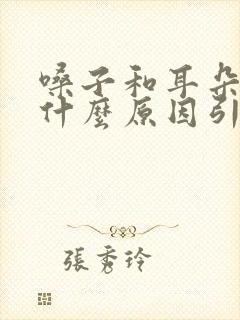 嗓子和耳朵
什麼原因引
張秀玲